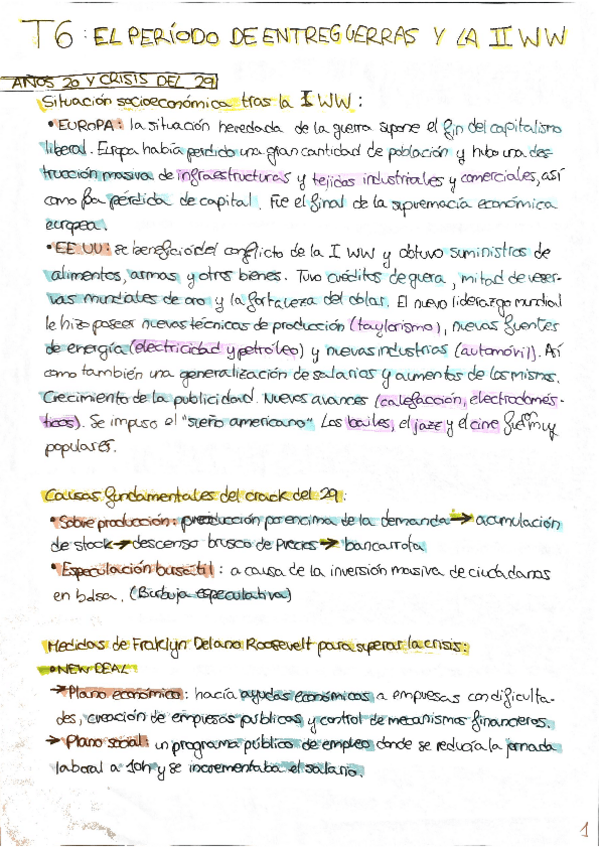 T6: EL PERÍODO DE ENTREGUERRAS Y LA II WW
AÑOS 20 Y CRISIS DEL 29
Situación socioeconómica tras la I WW:
• EUROPA: la situación heredada de la guerra supone el fin del capitalismo
liberal. Europa había perdido una gran cantidad de población y hubo una des-
trucción masiva de infraestructuras y tejidos industriales y comerciales, así
como fue pérdida de capital. Fue el final de la supremacía económica
europea.
• EE UU: se benefició del conflicto de la I WW y obtuvo suministros de
alimentos, armas y otros bienes. Tuvo créditos de guerra, mitad de reser-
vas mundiales de oro y la fortaleza del dólar. El nuevo liderazgo mundial
le hizo poseer nuevas técnicas de producción (taylorismo), nuevas fuentes
de energía (electricidad y petróleo) y nuevas industrias (automóvil). Así
como también una generalización de salarios y aumentos de los mismos.
Crecimiento de la publicidad. Nuevos avances (calefacción, electrodomés-
ticos). Se impuso el "sueño americano". Los bailes, el jazz y el cine fueron muy
populares.
Causas fundamentales del crack del 29:
• Sobreproducción: producción por encima de la demanda → acumulación
de stock → descenso brusco de precios → bancarrota
• Especulación bursátil: a causa de la inversión masiva de ciudadanos
en bolsa. (Burbuja especulativa)
Medidas de Fraklyn Delano Roosevelt para superar la crisis:
• NEW DEAL
→ Plano económico: hacía ayudas económicas a empresas con dificulta-
des, creación de empresas públicas y control de mecanismos financieros.
→ Plano social: un programa público de empleo donde se reducía la jornada
laboral a 10h y se incrementaba el salario.
1